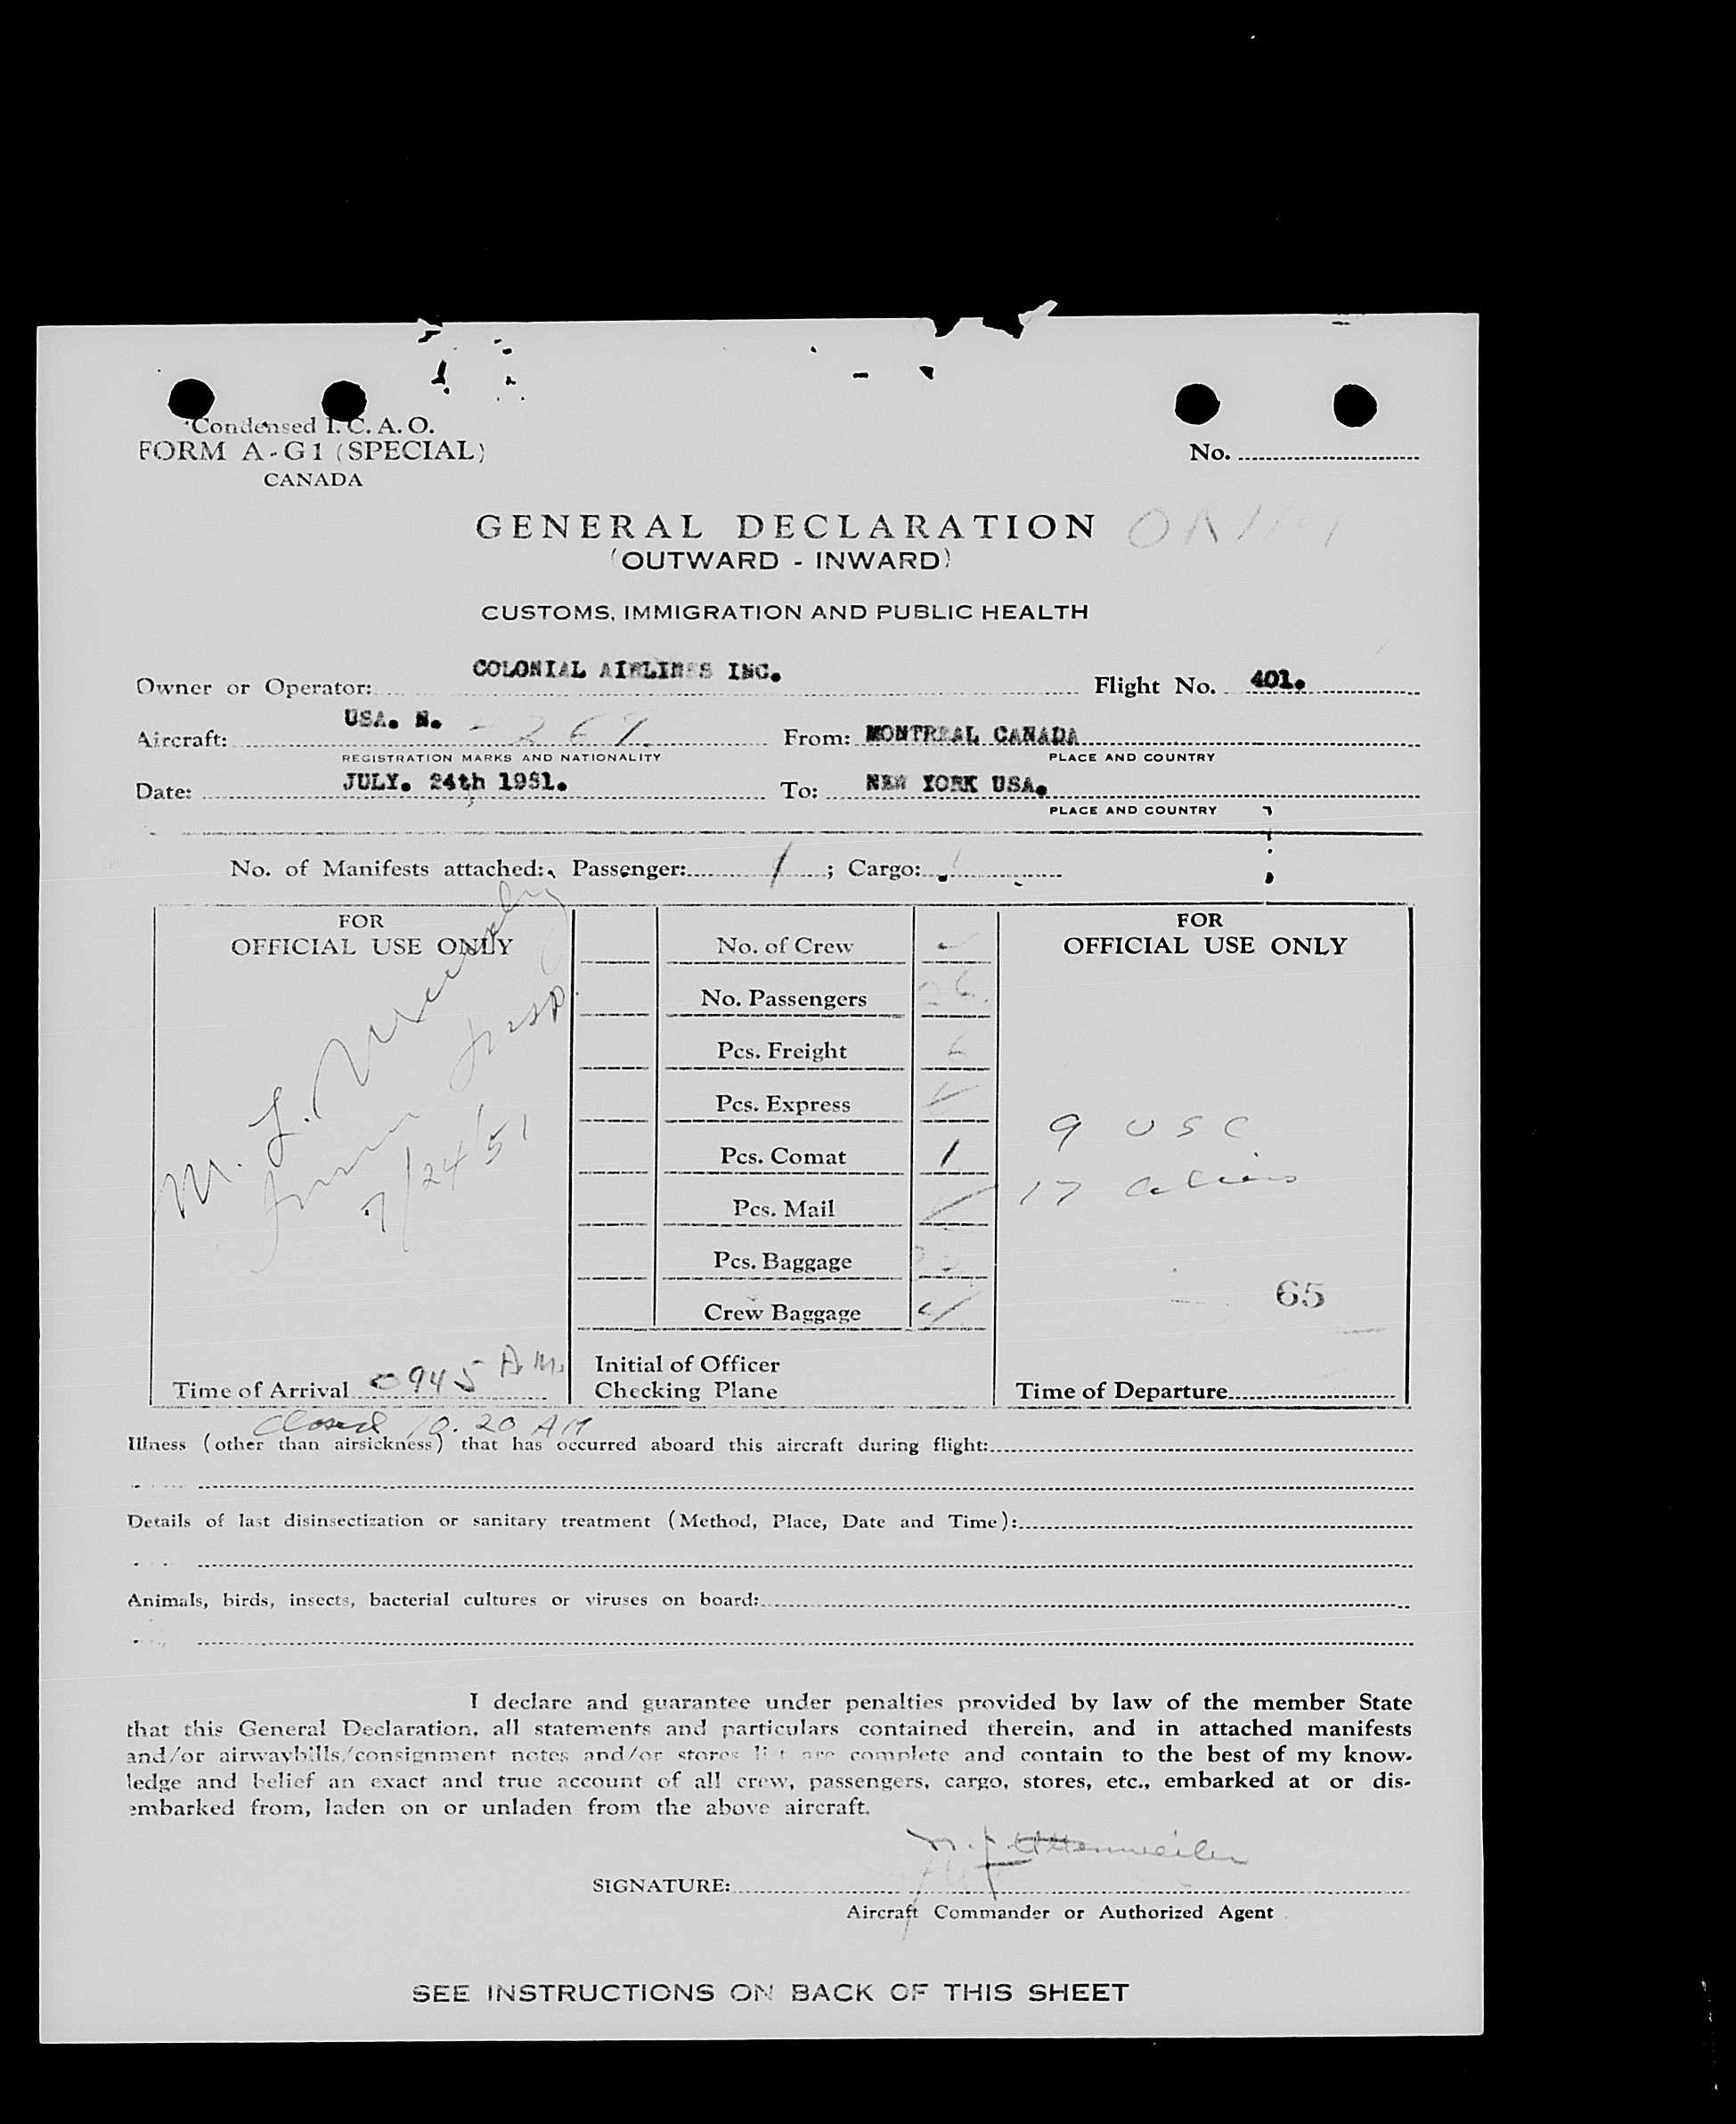 Condensed I. C. A. O.
FORM A-G1 (SPECIAL)
CANADA
No.
GENERAL DECLARATION
(OUTWARD - INWARD)
CUSTOMS, IMMIGRATION AND PUBLIC HEALTH
Owner or Operator: COLONIAL AIRLINES INC. Flight No. 401.
Aircraft: USA. N. From: MONTREAL CANADA
REGISTRATION MARKS AND NATIONALITY PLACE AND COUNTRY
Date: JULY. 24th 1951. To: NEW YORK USA.
PLACE AND COUNTRY
No. of Manifests attached: Passenger: 1 ; Cargo: 1
FOR
OFFICIAL USE ONLY
M. L.
7/24/51
Time of Arrival 0945 A.M.
No. of Crew
No. Passengers
Pcs. Freight
Pcs. Express
Pcs. Comat 1
Pcs. Mail
Pcs. Baggage
Crew Baggage
Initial of Officer
Checking Plane
FOR
OFFICIAL USE ONLY
9 USC
17 aliens
65
Time of Departure
Closed 10.20 AM
Illness (other than airsickness) that has occurred aboard this aircraft during flight:
Details of last disinsectization or sanitary treatment (Method, Place, Date and Time):
Animals, birds, insects, bacterial cultures or viruses on board:
I declare and guarantee under penalties provided by law of the member State
that this General Declaration, all statements and particulars contained therein, and in attached manifests
and/or airwaybills/consignment notes and/or stores list are complete and contain to the best of my know-
ledge and belief an exact and true account of all crew, passengers, cargo, stores, etc., embarked at or dis-
embarked from, laden on or unladen from the above aircraft.
SIGNATURE:
Aircraft Commander or Authorized Agent
SEE INSTRUCTIONS ON BACK OF THIS SHEET